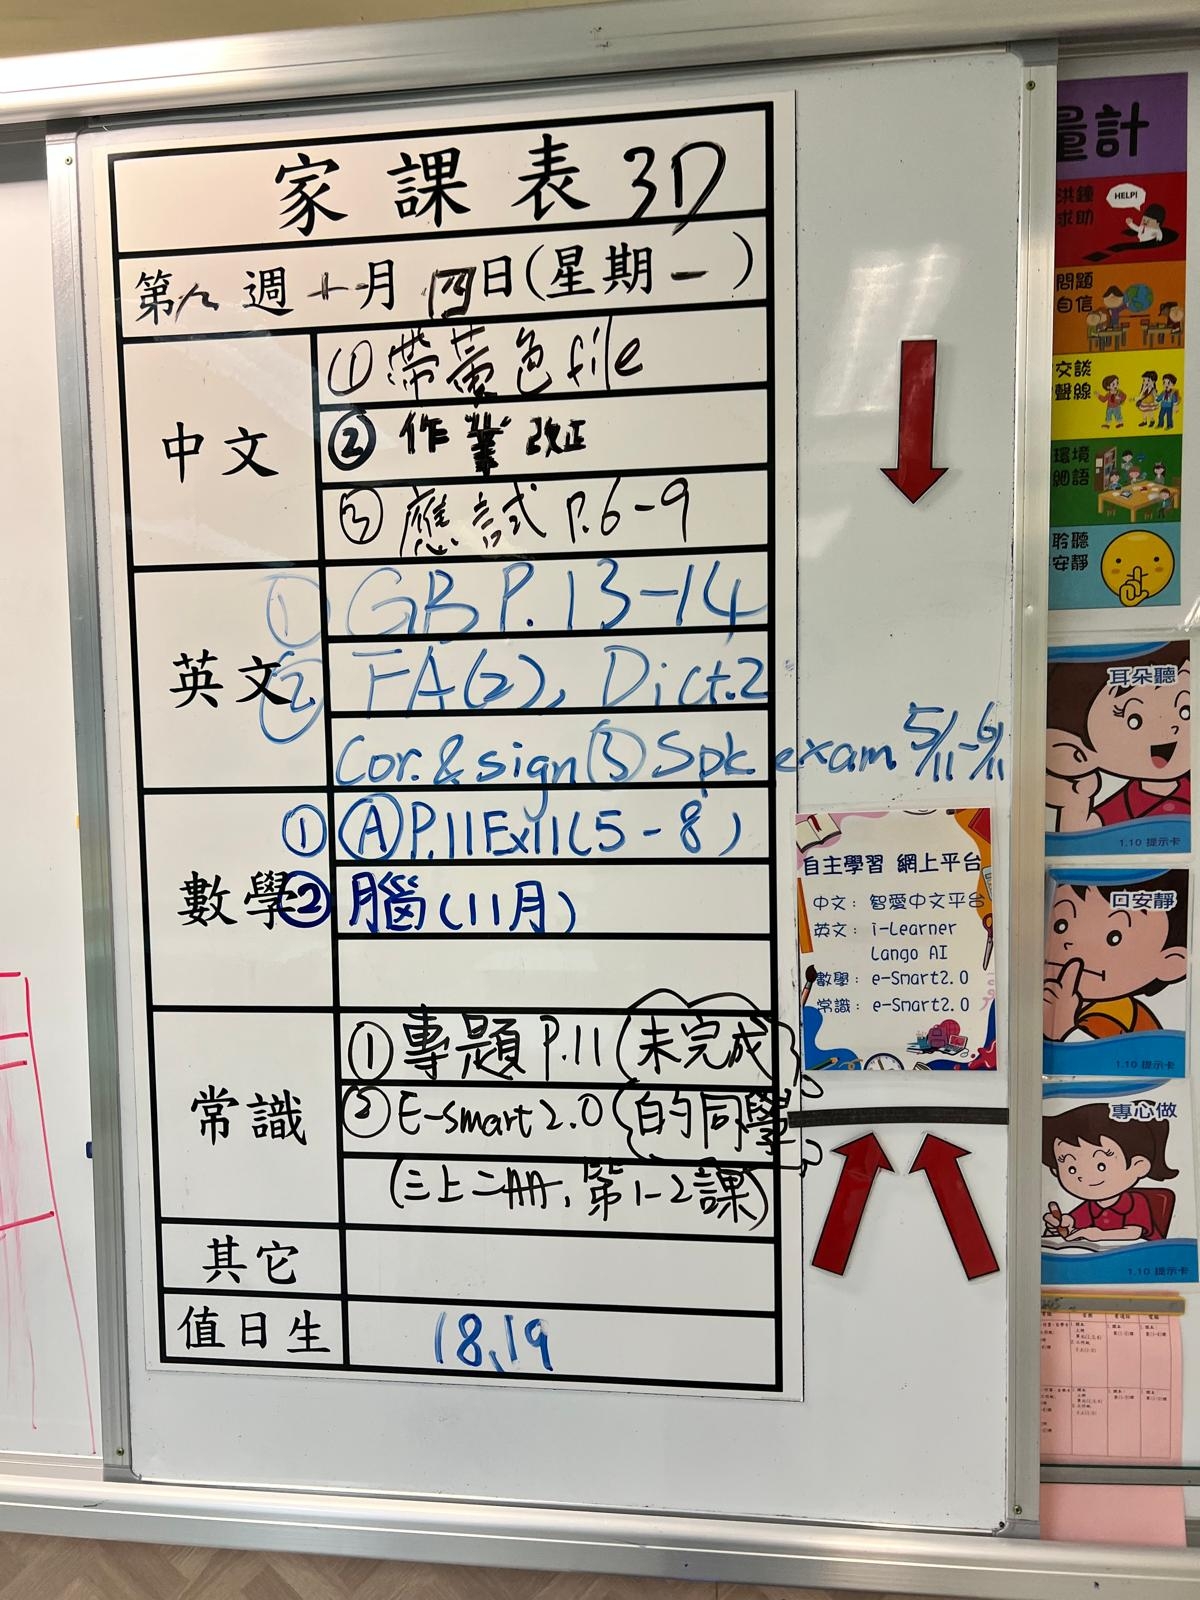 家課表 3D
第九週 十一月 四日(星期一)
中文
① 帶黃色file
② 作業改正
③ 應試 P.6-9
英文
① GB P.13-14
② FA(2), Dict.2
Cor. & sign ③ Spk. exam 5/11-6/11
數學
① Ⓐ P.11 Ex11(5-8)
② 腦(11月)
常識
① 專題 P.11 (未完成
② E-smart 2.0 的同學
(三上二冊, 第1-2課)
其它
值日生
18,19
自主學習 網上平台
中文: 智愛中文平台
英文: i-Learner
Lango AI
數學: e-Smart2.0
常識: e-Smart2.0
量計
洪鐘
求助
HELP!
問題
自信
交談
聲線
環境
細語
聆聽
安靜
耳朵聽
1.10 提示卡
口安靜
1.10 提示卡
專心做
1.10 提示卡